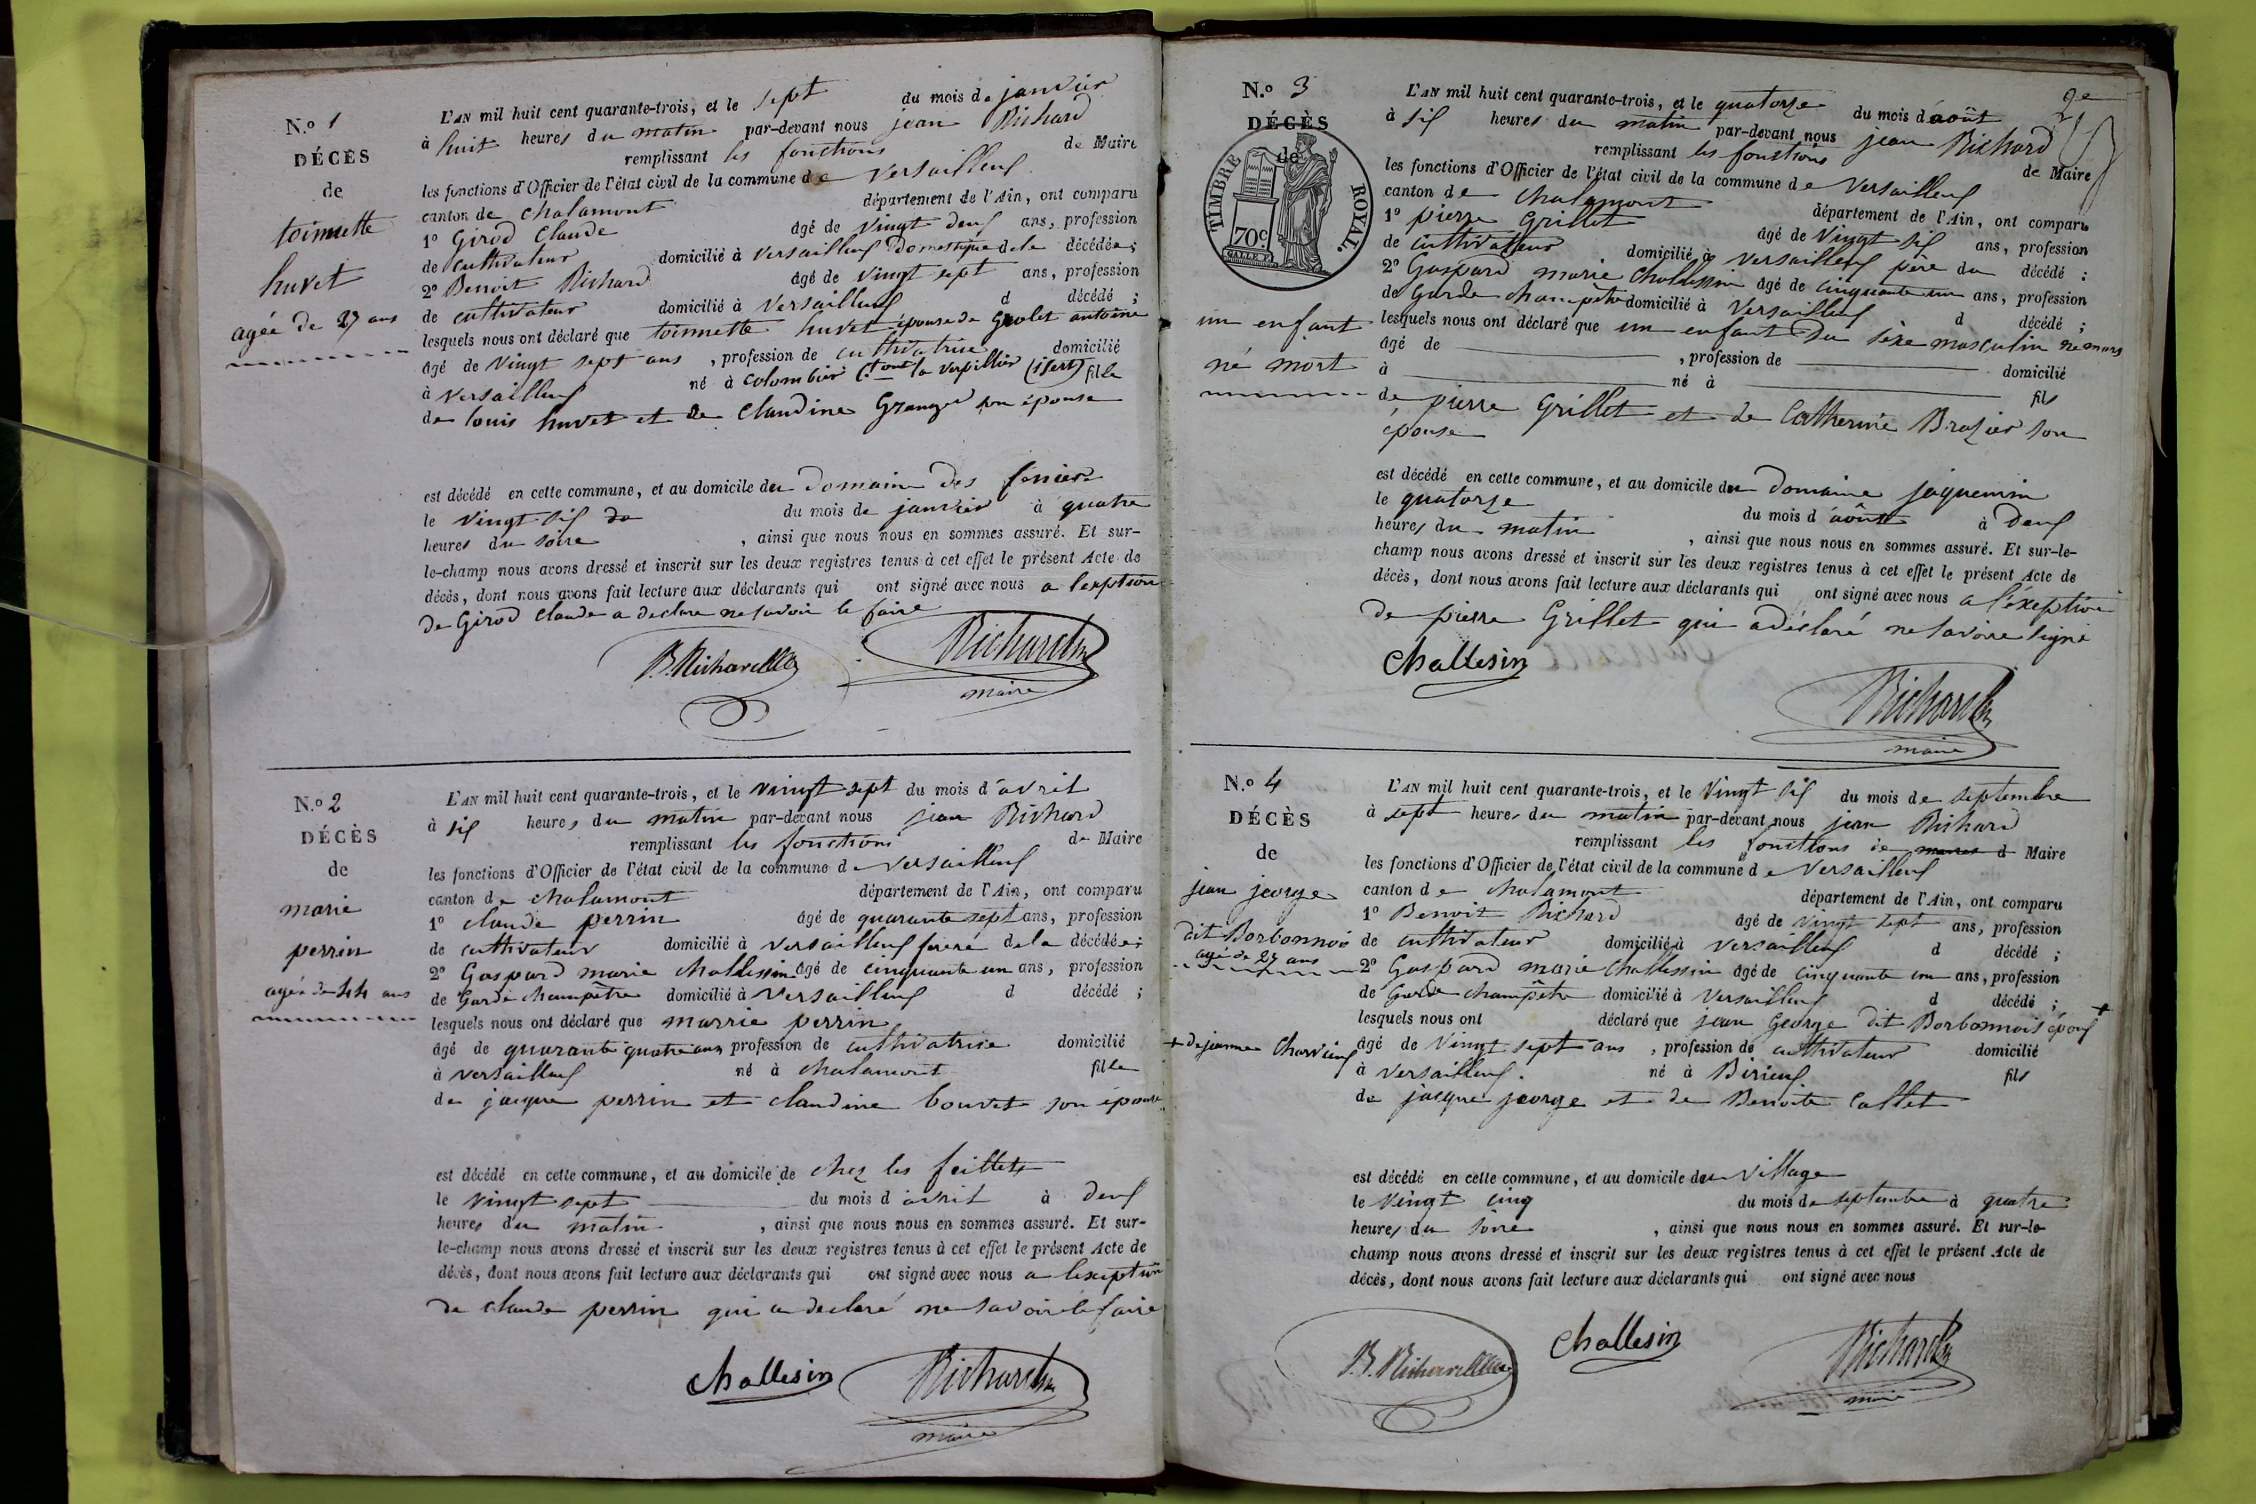 N.o 1
DÉCÈS
de
toinette
huvet
agée de 27 ans
L'AN mil huit cent quarante-trois, et le sept du mois de janvier
à huit heures du matin par-devant nous jean Richard
remplissant les fonctions de Maire
les fonctions d'Officier de l'état civil de la commune de Versailleux
canton de chalamont département de l'Ain, ont comparu
1o Girod Claude âgé de vingt deux ans, profession
de cultivateur domicilié à Versailleux domestique de la décédée;
2o Benoit Richard âgé de vingt sept ans, profession
de cultivateur domicilié à Versailleux d décédé;
lesquels nous ont déclaré que toinnette huvet épouse de Grolet antoine
âgé de vingt sept ans, profession de cultivatrice domicilié
à Versailleux né à colombier C.ton la verpillier (isert) fille
de louis huvet et de Claudine Granger son épouse
est décédé en cette commune, et au domicile du Domain des
le vingt six do du mois de janvier à quatre
heures du soire, ainsi que nous nous en sommes assuré. Et sur-
le-champ nous avons dressé et inscrit sur les deux registres tenus à cet effet le présent Acte de
décès, dont nous avons fait lecture aux déclarants qui ont signé avec nous a lexption
de Girod Claude a declare ne savoir le faire
B. Richard
Richard
maire
N.o 2
DÉCÈS
de
marie
perrin
agée de 44 ans
L'AN mil huit cent quarante-trois, et le vingt sept du mois d'avril
à six heures du matin par-devant nous jean Richard
remplissant les fonctions de Maire
les fonctions d'Officier de l'état civil de la commune de Versailleux
canton de chalamont département de l'Ain, ont comparu
1o claude perrin âgé de quarante sept ans, profession
de cultivateur domicilié à versailleux frere de la décédée;
2o Gaspard marie challessin âgé de cinquante un ans, profession
de Garde champêtre domicilié à Versailleux d décédé;
lesquels nous ont déclaré que marrie perrin
âgé de quarante quatre ans profession de cultivatrice domicilié
à versailleux né à chalamont fille
de jacque perrin et claudine bouvet son épouse
est décédé en cette commune, et au domicile de chez les feillets
le vingt sept du mois d avril à deux
heures du matin, ainsi que nous nous en sommes assuré. Et sur-
le-champ nous avons dressé et inscrit sur les deux registres tenus à cet effet le présent Acte de
décès, dont nous avons fait lecture aux déclarants qui ont signé avec nous a lexeption
de claude perrin qui a declaré ne savoir le faire
Challesin
Richard
maire
2e
N.o 3
DÉCÈS
de
TIMBRE ROYAL.
70c.
un enfant
né mort
L'AN mil huit cent quarante-trois, et le quatorze du mois d'août
à six heures du matin par-devant nous jean Richard
remplissant les fonctions de Maire
les fonctions d'Officier de l'état civil de la commune de Versailleux
canton de chalamont département de l'Ain, ont comparu
1o pierre Grillet âgé de vingt six ans, profession
de cultivateur domicilié à versailleux père du décédé;
2o Gaspard marie challessin âgé de cinquante un ans, profession
de Garde champêtre domicilié à Versailleux d décédé;
lesquels nous ont déclaré que un enfant du sèxe masculin né mors
âgé de , profession de domicilié
à né à fils
de pierre Grillet et de Catherine Brazier son
épouse
est décédé en cette commune, et au domicile du Domaine jaquemin
le quatorze du mois d août à deux
heures du matin, ainsi que nous nous en sommes assuré. Et sur-le-
champ nous avons dressé et inscrit sur les deux registres tenus à cet effet le présent Acte de
décès, dont nous avons fait lecture aux déclarants qui ont signé avec nous a l'éxeption
de pierre Grillet qui a déclaré ne savoire signé
Challesin
Richard
maire
N.o 4
DÉCÈS
de
jean jeorge
dit Borbonnois
agé de 27 ans
+ de jeanne Charvieux
L'AN mil huit cent quarante-trois, et le vingt six du mois de septembre
à sept heures du matin par-devant nous jean Richard
remplissant les fonctions de Maire
les fonctions d'Officier de l'état civil de la commune de Versailleux
canton de chalamont département de l'Ain, ont comparu
1o Benoit Richard âgé de vingt sept ans, profession
de cultivateur domicilié à versailleux d décédé;
2o Gaspard marie Challessin âgé de cinquante un ans, profession
de Garde champêtre domicilié à Versailleux d décédé;
lesquels nous ont déclaré que jean George dit Borbonnois époux +
âgé de vingt sept ans, profession de cultivateur domicilié
à versailleux. né à Birieux fils
de jacque jeorge et de Benoite Callet
est décédé en cette commune, et au domicile du village
le vingt cinq du mois de septembre à quatre
heures du soire, ainsi que nous nous en sommes assuré. Et sur-le-
champ nous avons dressé et inscrit sur les deux registres tenus à cet effet le présent Acte de
décès, dont nous avons fait lecture aux déclarants qui ont signé avec nous
B. Richard
Challesin
Richard
maire